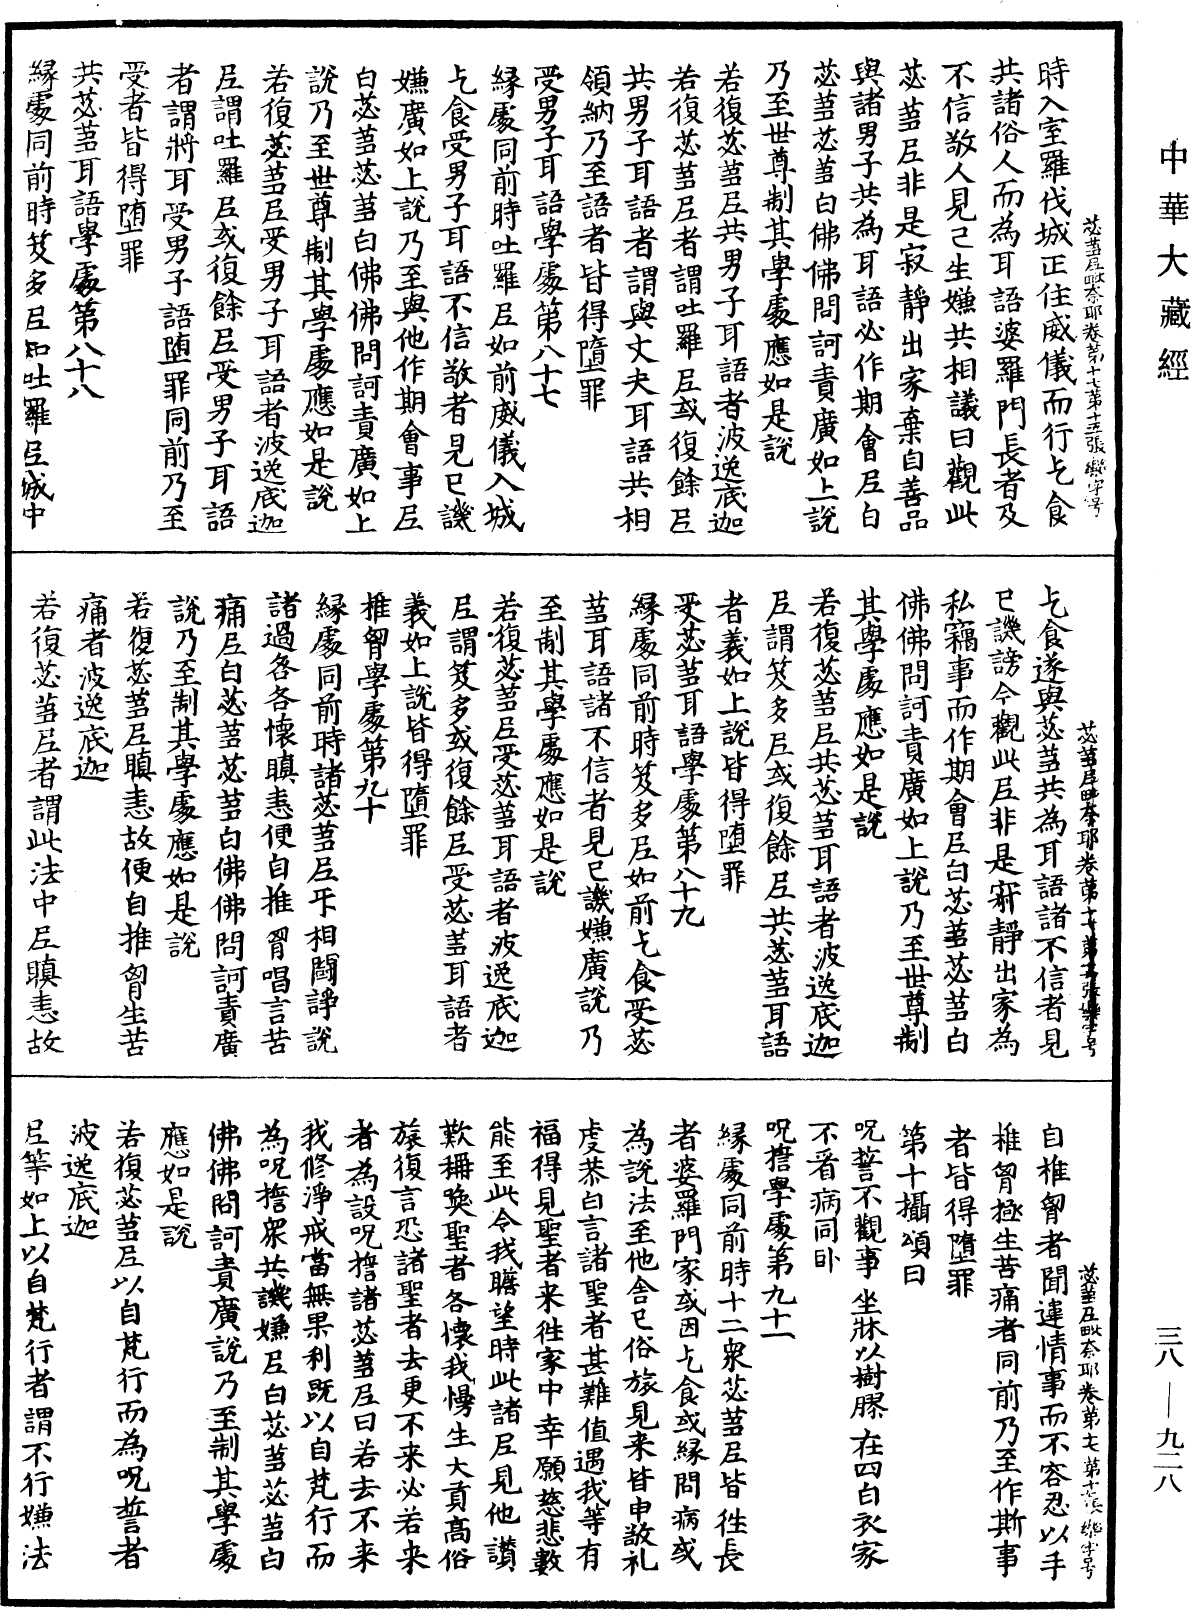 中華大藏經
苾芻尼毗奈耶卷第十七 第十五張 樂字号
時入室羅伐城正住威儀而行乞食
共諸俗人而為耳語婆羅門長者及
不信敬人見已生嫌共相議曰觀此
苾芻尼非是寂靜出家棄自善品
與諸男子共為耳語必作期會尼白
苾芻苾芻白佛佛問訶責廣如上說
乃至世尊制其學處應如是說
若復苾芻尼共男子耳語者波逸底迦
若復苾芻尼者謂吐羅尼或復餘尼
共男子耳語者謂與丈夫耳語共相
領納乃至語者皆得墮罪
受男子耳語學處第八十七
緣處同前時吐羅尼如前威儀入城
乞食受男子耳語不信敬者見已譏
嫌廣如上說乃至與他作期會事尼
白苾芻苾芻白佛佛問訶責廣如上
說乃至世尊制其學處應如是說
若復苾芻尼受男子耳語者波逸底迦
尼謂吐羅尼或復餘尼受男子耳語
者謂將耳受男子語墮罪同前乃至
受者皆得墮罪
共苾芻耳語學處第八十八
緣處同前時笈多尼如吐羅尼城中
苾芻尼毗奈耶卷第十七 第十五張 樂字号
乞食遂與苾芻共為耳語諸不信者見
已譏謗今觀此尼非是寂靜出家為
私竊事而作期會尼白苾芻苾芻白
佛佛問訶責廣如上說乃至世尊制
其學處應如是說
若復苾芻尼共苾芻耳語者波逸底迦
尼謂笈多尼或復餘尼共苾芻耳語
者義如上說皆得墮罪
受苾芻耳語學處第八十九
緣處同前時笈多尼如前乞食受苾
芻耳語諸不信者見已譏嫌廣說乃
至制其學處應如是說
若復苾芻尼受苾芻耳語者波逸底迦
尼謂笈多或復餘尼受苾芻耳語者
義如上說皆得墮罪
椎胷學處第九十
緣處同前時諸苾芻尼互相鬪諍說
諸過各各懷瞋恚便自推胷唱言苦
痛尼白苾芻苾芻白佛佛問訶責廣
說乃至制其學處應如是說
若復苾芻尼瞋恚故便自推胷生苦
痛者波逸底迦
若復苾芻尼者謂此法中尼瞋恚故
苾芻尼毗奈耶卷第十七 第十六張 樂字号
自椎胷者聞違情事而不容忍以手
椎胷極生苦痛者同前乃至作斯事
者皆得墮罪
第十攝頌曰
呪誓不觀事 坐牀以樹膠 在四白衣家
不看病同卧
呪擔學處第九十一
緣處同前時十二眾苾芻尼皆往長
者婆羅門家或因乞食或緣問病或
為說法至他舍已俗旅見來皆申敬礼
虔恭白言諸聖者甚難值遇我等有
福得見聖者来往家中幸願慈悲數
能至此令我瞻望時此諸尼見他讚
歎稱喚聖者各懷我慢生大貢高俗
旅復言恐諸聖者去更不来必若来
者為設呪擔諸苾芻尼曰若去不来
我修淨戒當無果利既以自梵行而
為呪擔眾共譏嫌尼白苾芻苾芻白
佛佛問訶責廣說乃至制其學處
應如是說
若復苾芻尼以自梵行而為呪誓者
波逸底迦
尼等如上以自梵行者謂不行嫌法
三八—九二八